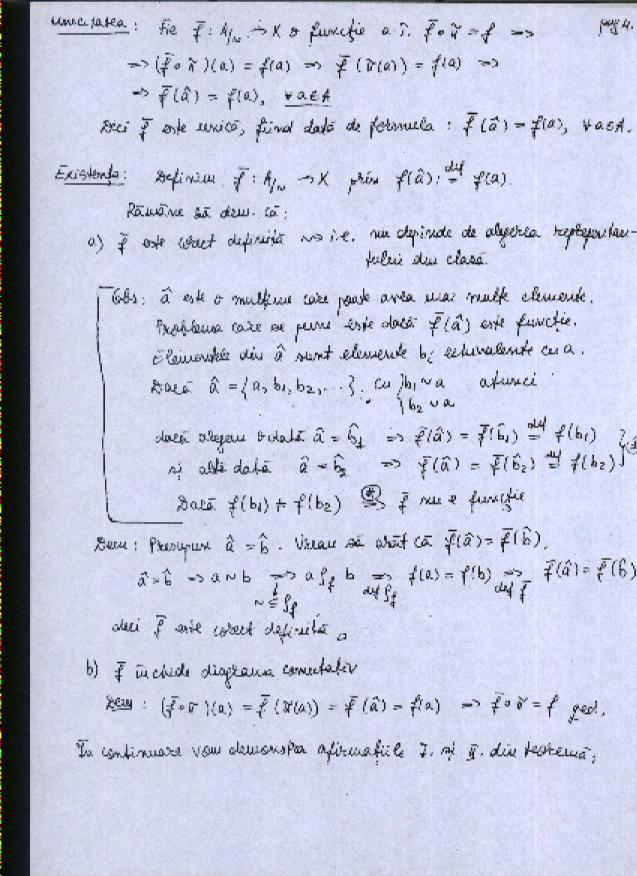 pag 4.
Unicitatea: Fie f̄ : A/~ → X o funcție a.î. f̄ ∘ π̃ = f =>
=> (f̄ ∘ π̃)(a) = f(a) => f̄(π̃(a)) = f(a) =>
=> f̄(â) = f(a), ∀ a∈A
Deci f̄ este unică, fiind dată de formula: f̄(â) = f(a), ∀ a∈A.
Existența: Definim f̄ : A/~ → X prin f(â) :=^def f(a).
Rămâne să dem. că:
a) f̄ este corect definită ~> i.e. nu depinde de alegerea reprezentan-
tului din clasă.
Obs: â este o mulțime care poate avea mai multe elemente.
Problema care se pune este dacă f̄(â) este funcție.
Elementele din â sunt elemente bᵢ echivalente cu a.
Dacă â = {a, b₁, b₂, ...} cu { b₁ ~ a atunci
b₂ ~ a
dacă alegem odată â = b̂₁ => f̄(â) = f̄(b̂₁) =^def f(b₁)
și altă dată â = b̂₂ => f̄(â) = f̄(b̂₂) =^def f(b₂) } (*)
Dacă f(b₁) ≠ f(b₂) =>^(*) f̄ nu e funcție
Dem: Presupun â = b̂. Vreau să arăt că f̄(â) = f̄(b̂).
â = b̂ => a ~ b => a ρ_f b => f(a) = f(b) => f̄(â) = f̄(b̂)
~ ⊆ ρ_f def ρ_f def f̄
deci f̄ este corect definită □
b) f̄ închide diagrama comutativ
Dem: (f̄ ∘ π̃)(a) = f̄(π̃(a)) = f̄(â) = f(a) => f̄ ∘ π̃ = f qed.
În continuare vom demonstra afirmațiile I. și II. din teoremă: